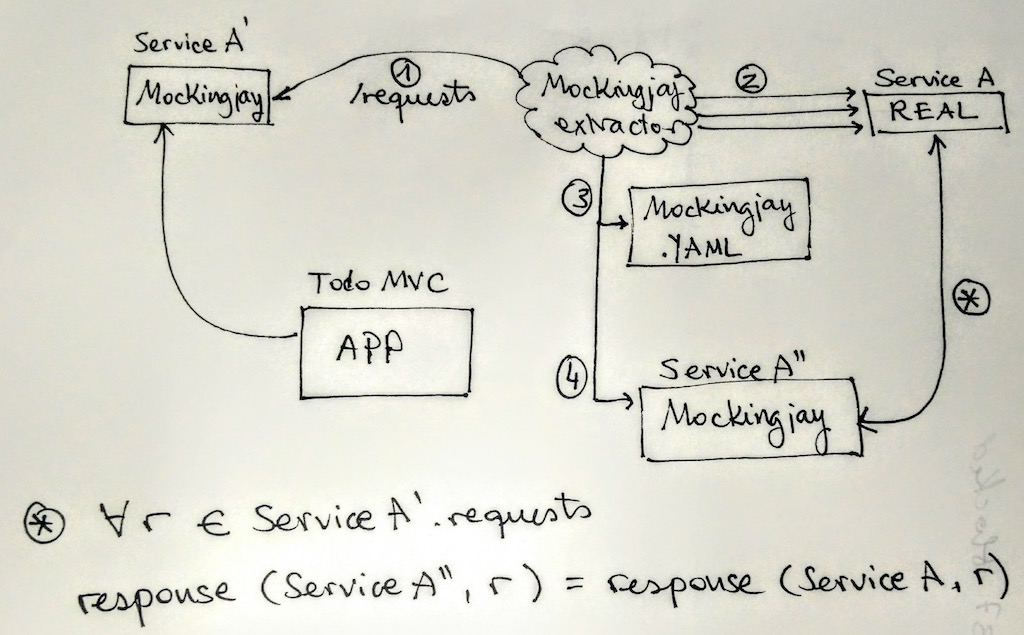 Service A'
Mockingjay
①
/requests
Mockingjay
extractor
②
Service A
REAL
③
Mockingjay
.YAML
Todo MVC
APP
④
Service A"
Mockingjay
⊛
⊛ ∀ r ∈ Service A'.requests
response (Service A", r) = response (Service A, r)